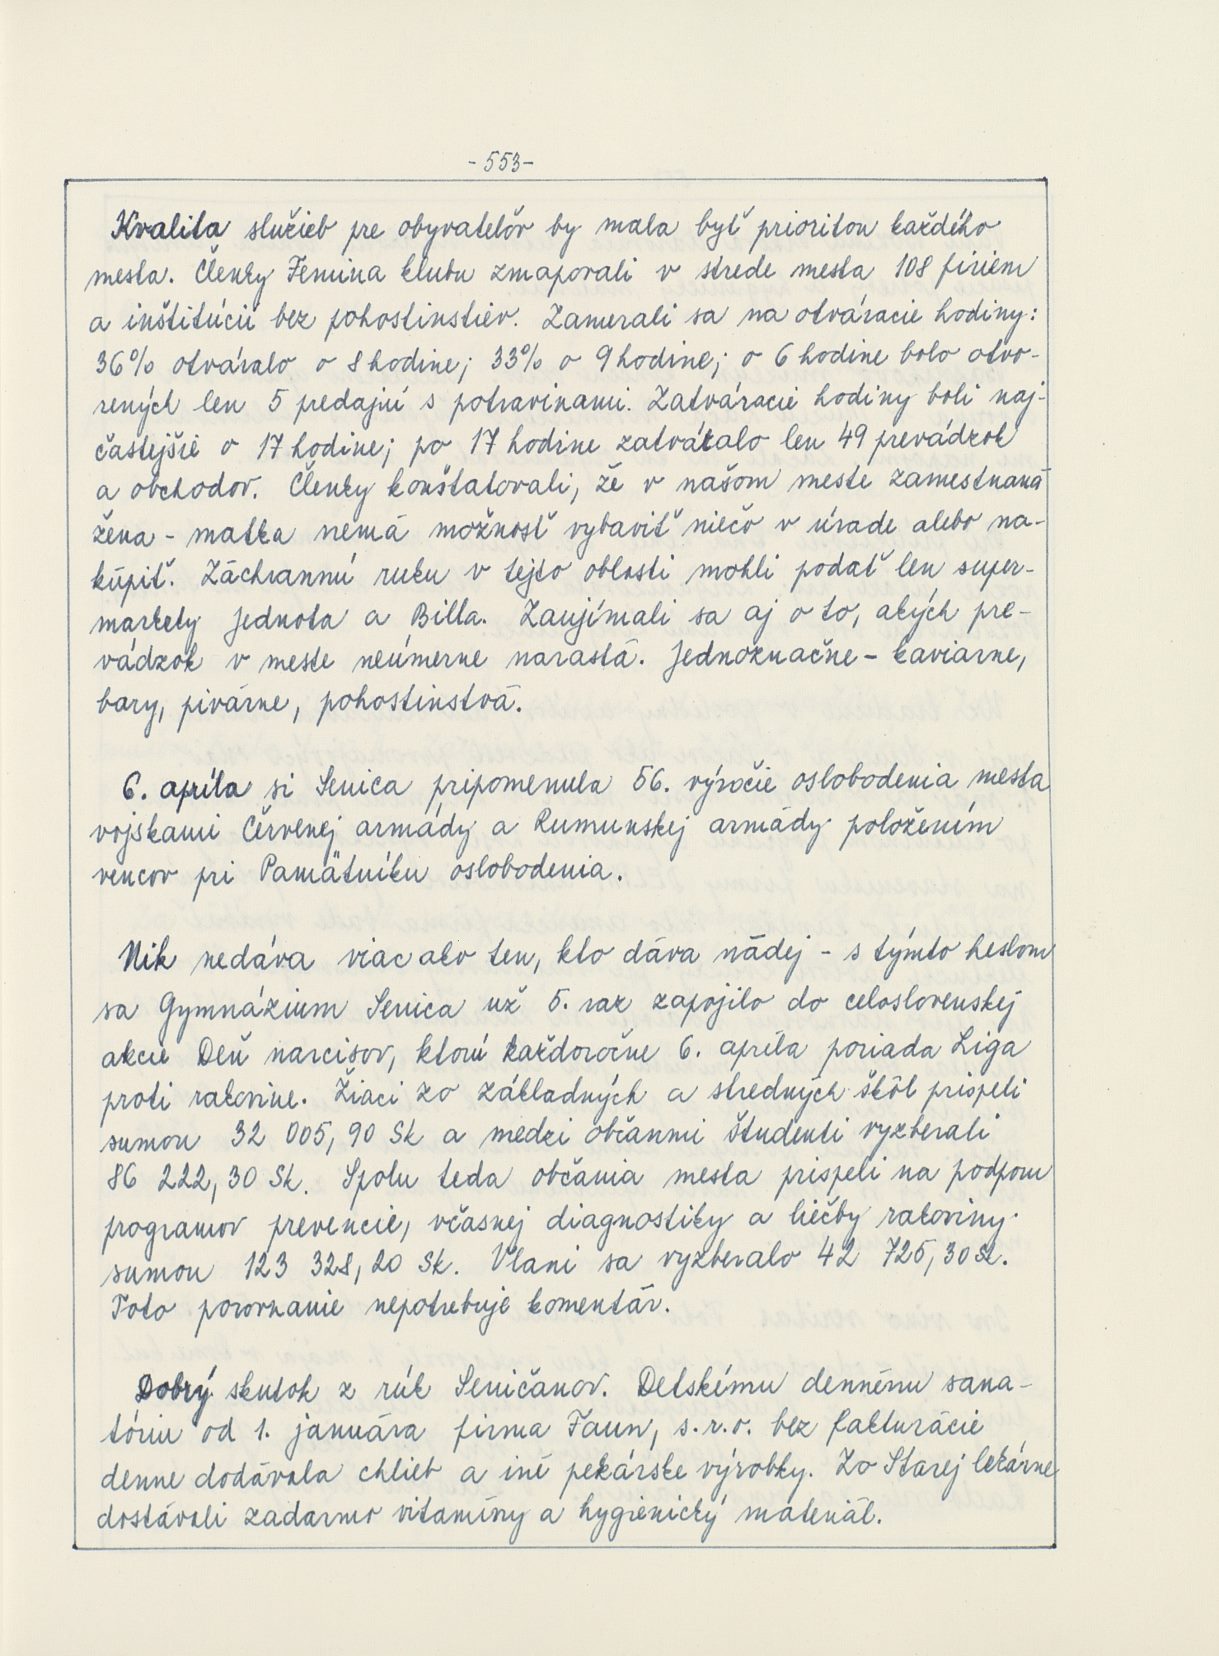 - 553 -
Kvalita služieb pre obyvateľov by mala byť prioritou každého
mesta. Členky Femina klubu zmapovali v strede mesta 108 firiem
a inštitúcií bez pohostinstiev. Zamerali sa na otváracie hodiny:
36% otváralo o 8 hodine; 33% o 9 hodine; o 6 hodine bolo otvo-
rených len 5 predajní s potravinami. Zatváracie hodiny boli naj-
častejšie o 17 hodine; po 17 hodine zatváralo len 49 prevádzok
a obchodov. Členky konštatovali, že v našom meste zamestnaná
žena - matka nemá možnosť vybaviť niečo v úrade alebo na-
kúpiť. Záchrannú ruku v tejto oblasti mohli podať len super-
markety Jednota a Billa. Zaujímali sa aj o to, akých pre-
vádzok v meste neúmerne narastá. Jednoznačne - kaviarne,
bary, pivárne, pohostinstvá.
6. apríla si Senica pripomenula 56. výročie oslobodenia mesta
vojskami Červenej armády a Rumunskej armády položením
vencov pri Pamätníku oslobodenia.
Nik nedáva viac ako ten, kto dáva nádej - s týmto heslom
sa Gymnázium Senica už 5. raz zapojilo do celoslovenskej
akcie Deň narcisov, ktorú každoročne 6. apríla poriada Liga
proti rakovine. Žiaci zo základných a stredných škôl prispeli
sumou 32 005,90 Sk a medzi občanmi študenti vyzberali
86 222,30 Sk. Spolu teda občania mesta prispeli na podporu
programov prevencie, včasnej diagnostiky a liečby rakoviny
sumou 123 328,20 Sk. Vlani sa vyzberalo 42 725,30 Sk.
Toto porovnanie nepotrebuje komentár.
Dobrý skutok z rúk Seničanov. Detskému dennému sana-
tóriu od 1. januára firma Faun, s.r.o. bez fakturácie
denne dodávala chlieb a iné pekárske výrobky. Zo Starej lekárne
dostávali zadarmo vitamíny a hygienický materiál.